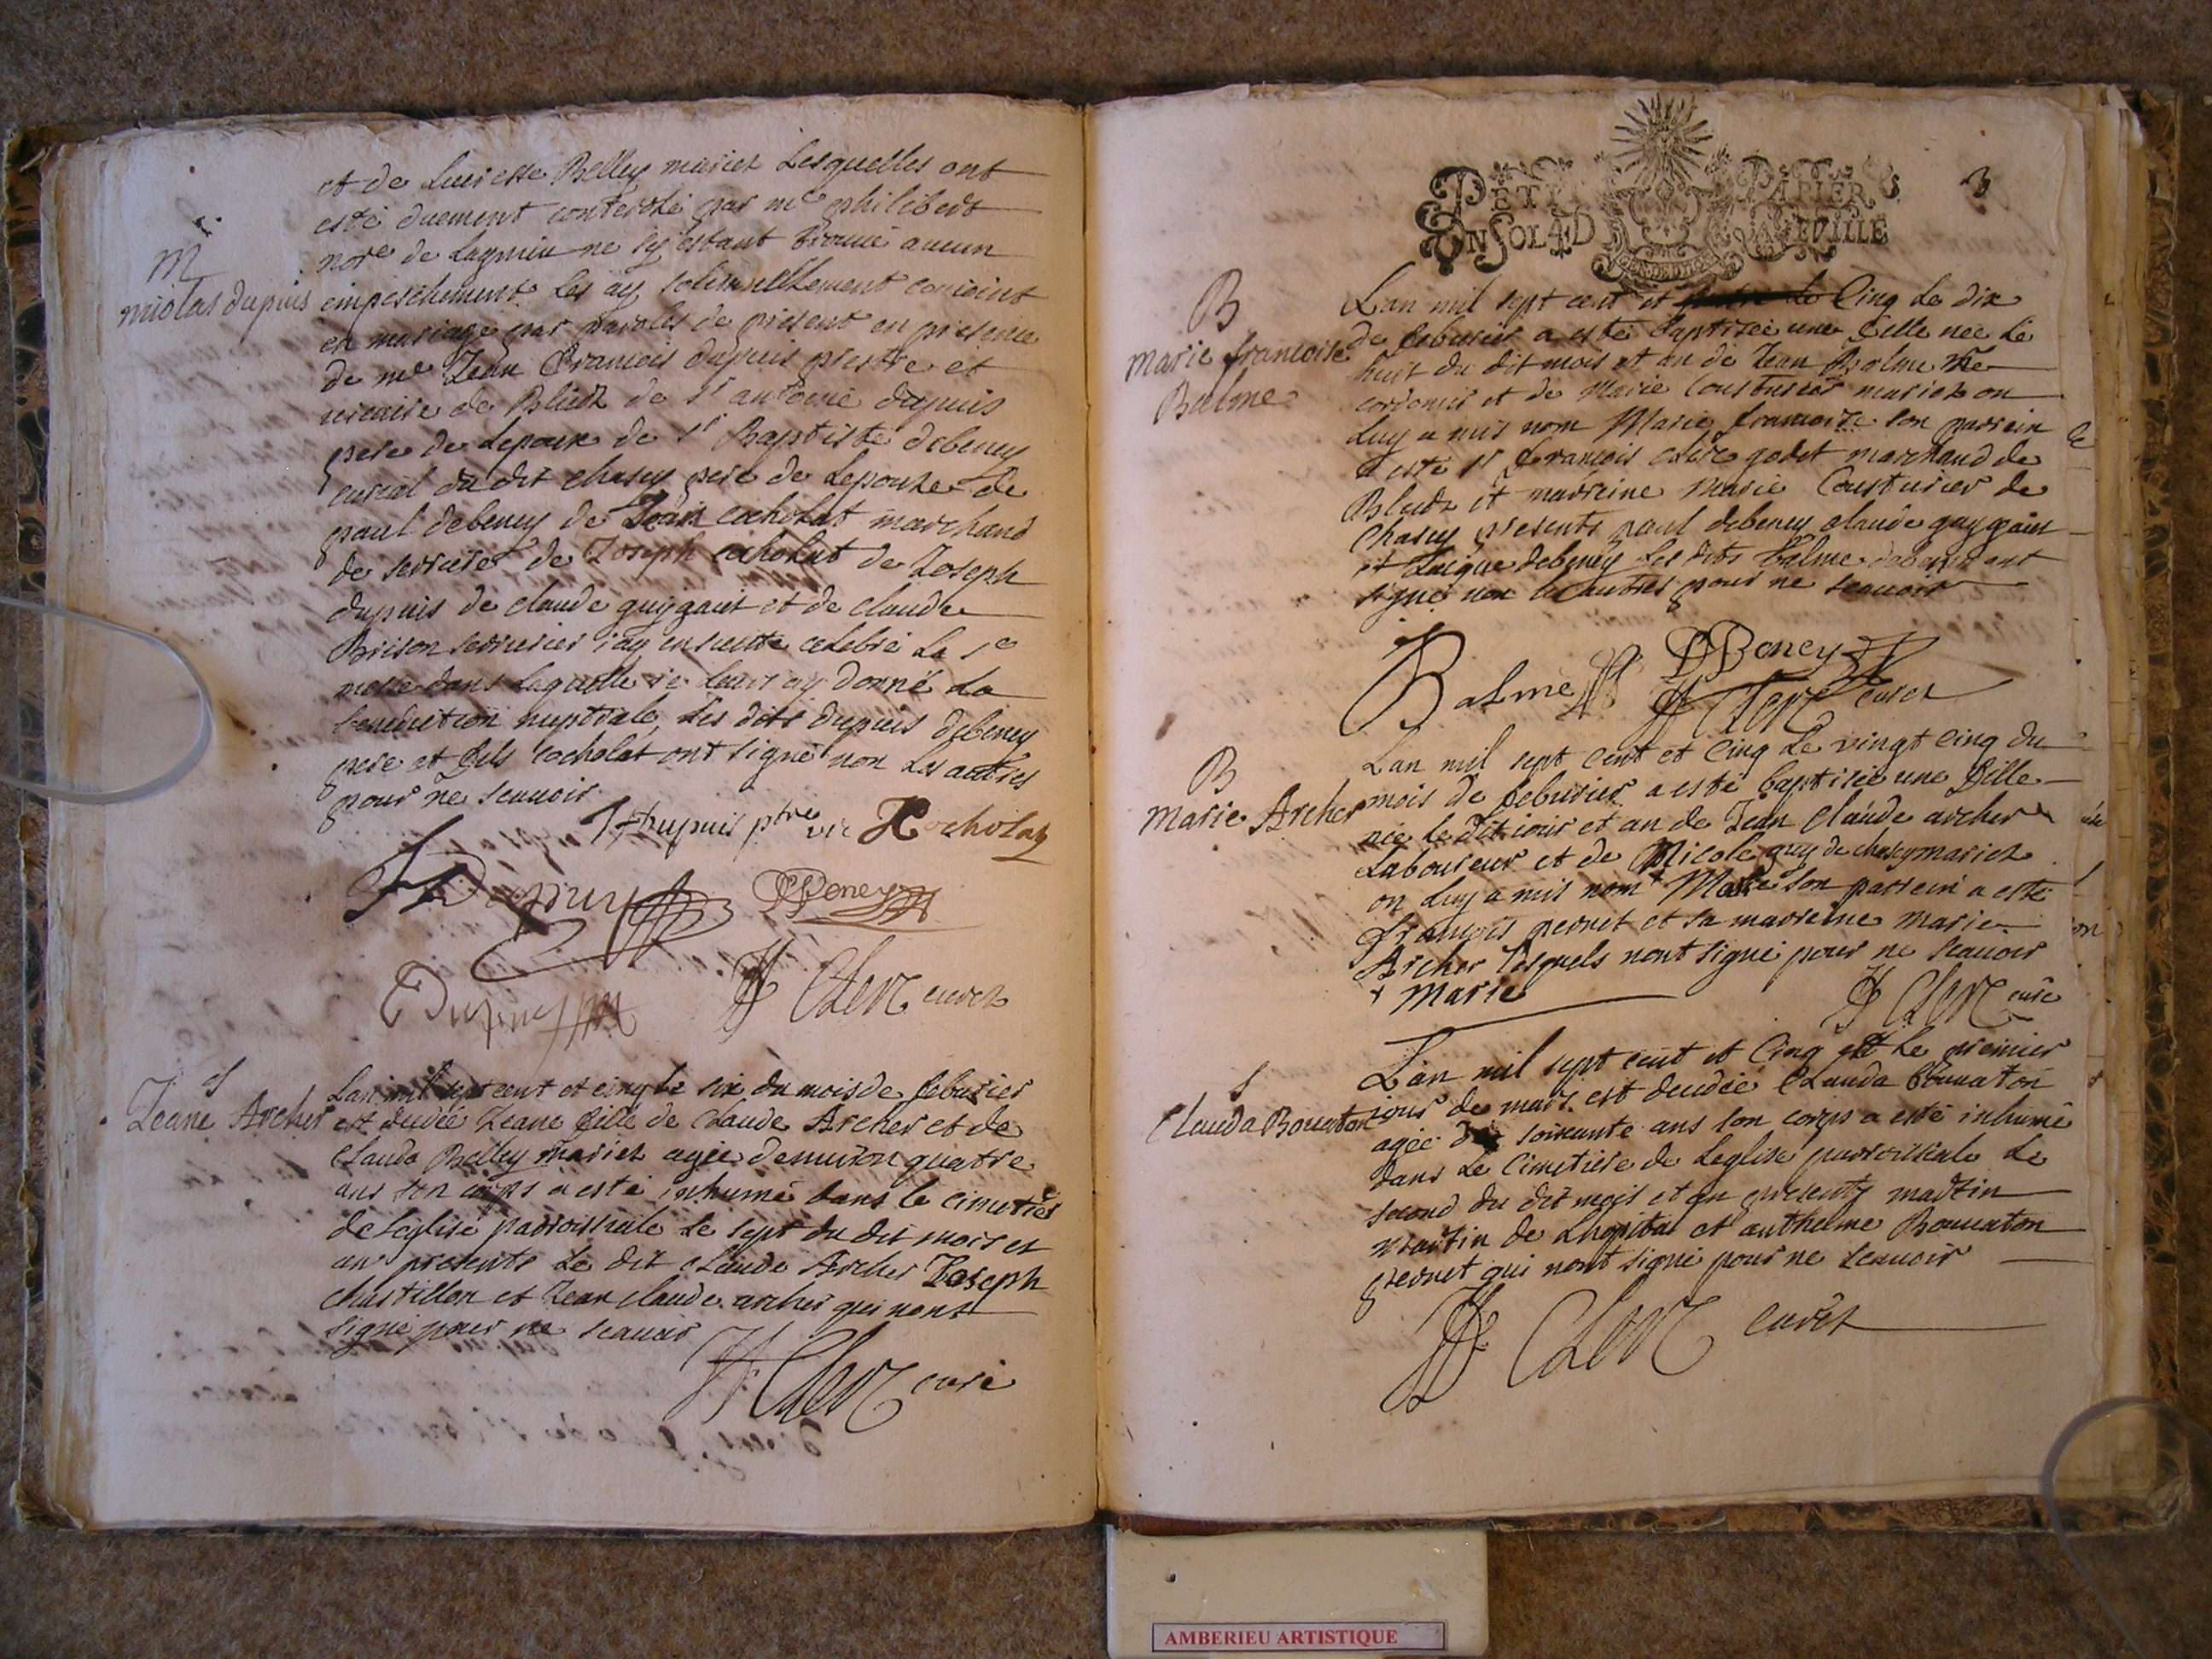 M
nicolas dupuis
et de Lucresse Belley mariez Lesquelles ont
esté duement conterolé par me philibert
nore de Lagnieu ne sy estant trouué aucun
empeschement Les ay solemnellement conioint
en mariage par paroles de present en presence
de me Jean Francois dupuis prestre et
vicaire de Blied de sr antoine dupuis
pere de Lepoux de sr Baptiste debeney
curial du dit chasey pere de Lepouse de
paul debeney de Jean cocholat marchand
de serrieres de Joseph cocholat de Joseph
dupuis de claude guygaut et de claude
Brison serrurier iay ensuitte celebré La ste
messe dans Laquelle ie leur ay donné La
benediction nuptiale, Les dits dupuis debeney
pere et fils cocholat ont signé non Les autres
pour ne scauoir
JF Dupuis ptre vic J Cocholat
Dupuy DBeney
Dupuy H CLerc curez
S
Jeane Archer
Lan mil sept cent et cinq le six du mois de feburier
est decedée Jeane fille de Claude Archer et de
Clauda Belley mariez agée denuiron quatre
ans son corps a esté inhumé dans le cimetier
de Leglise parroissiale Le sept du dit mois et
an presents Le dit claude Archer Joseph
chastillon et Jean claude archer qui nont
signé pour ne scauoir
H CLerc curé
PETIT PAPIER
UN SOL 4 D LA FEUILLE
3
B
Marie francoise
Balme
Lan mil sept cent et Cinq Le dix
de feburier a esté baptisée une fille née Le
huit du dit mois et an de Jean Balme Me
cordonier et de Marie Cousturier mariez on
Luy a mis nom Marie francoise son parrein
a esté sr francois godet marchand de
Bliedz et marreine Marie Cousturier de
Chasey presents paul debeney claude guygaut
et debeney Les dits Balme debeney ont
signé non les autres pour ne scauoir
Balme DBeney
H CLerc curez
B
Marie Archer
Lan mil sept cent et Cinq Le vingt cinq du
mois de feburier a esté baptisée une fille
née le dit iour et an de Jean Claude archer
Laboureur et de Nicole guy de chasey mariez
on Luy a mis nom Marie son parrein a esté
francois pernet et sa marreine Marie
Archer Lesquels nont signé pour ne scauoir
+ Marie
H CLerc curé
S
Clauda Bouaton
Lan mil sept cent et Cinq Le premier
iour de mars est decedée Clauda Bouaton
agée de soixante ans son corps a esté inhumé
dans Le Cimetiere de Leglise parroissiale Le
second du dit mois et an presents martin
martin de Lhopital et anthelme Bouuaton
pernet qui nont signé pour ne scauoir
H CLerc curez
AMBERIEU ARTISTIQUE